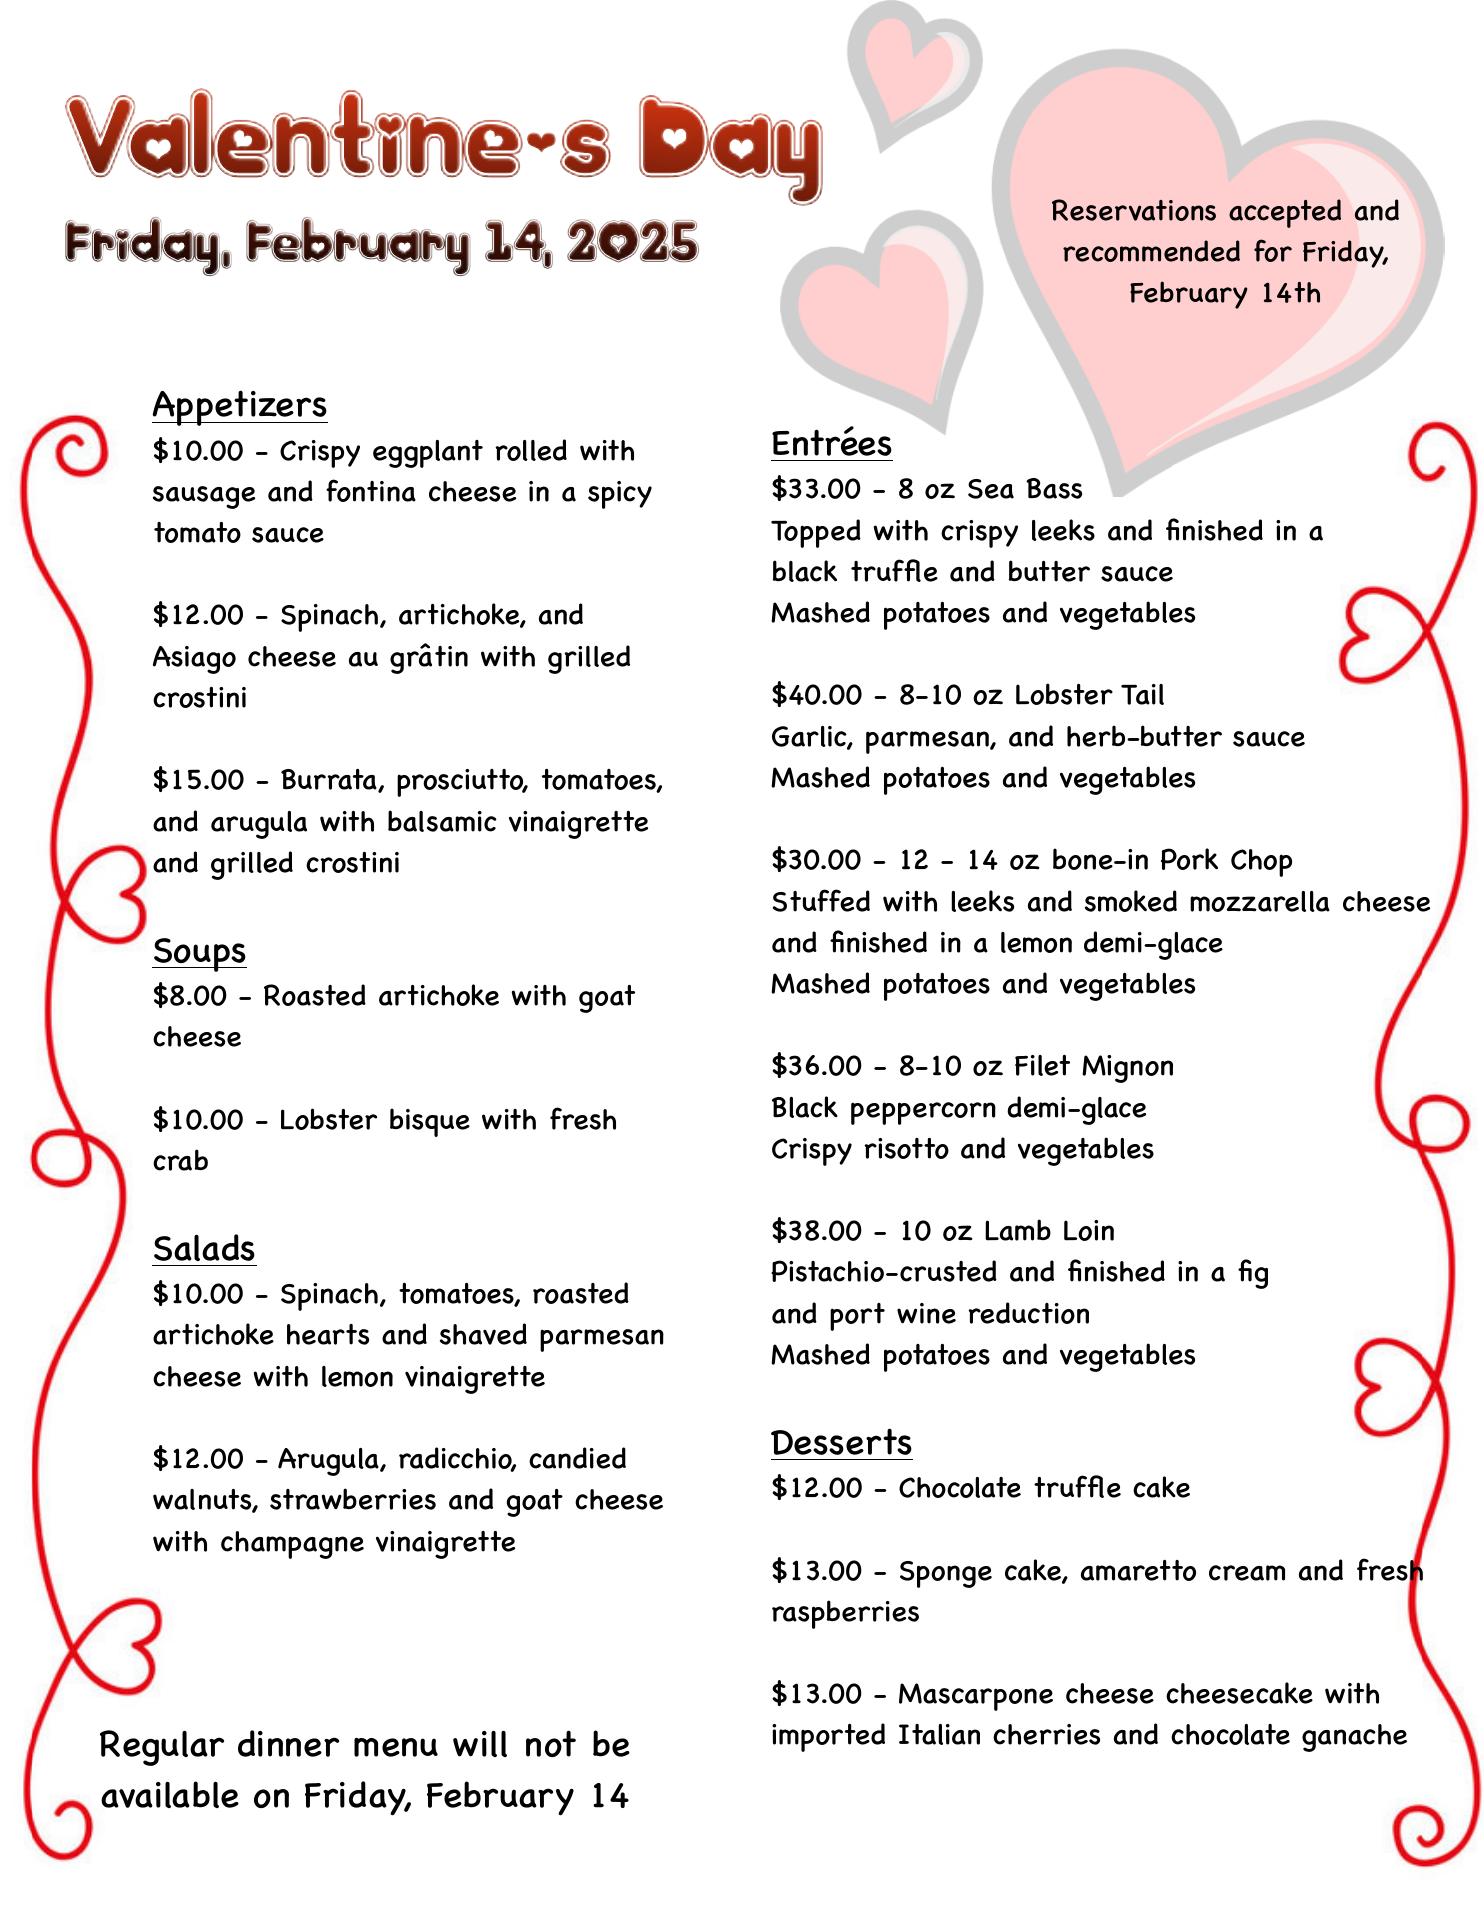 Valentine's Day
Friday, February 14, 2025
Reservations accepted and
recommended for Friday,
February 14th
Appetizers
$10.00 - Crispy eggplant rolled with
sausage and fontina cheese in a spicy
tomato sauce
$12.00 - Spinach, artichoke, and
Asiago cheese au grâtin with grilled
crostini
$15.00 - Burrata, prosciutto, tomatoes,
and arugula with balsamic vinaigrette
and grilled crostini
Soups
$8.00 - Roasted artichoke with goat
cheese
$10.00 - Lobster bisque with fresh
crab
Salads
$10.00 - Spinach, tomatoes, roasted
artichoke hearts and shaved parmesan
cheese with lemon vinaigrette
$12.00 - Arugula, radicchio, candied
walnuts, strawberries and goat cheese
with champagne vinaigrette
Regular dinner menu will not be
available on Friday, February 14
Entrées
$33.00 - 8 oz Sea Bass
Topped with crispy leeks and finished in a
black truffle and butter sauce
Mashed potatoes and vegetables
$40.00 - 8-10 oz Lobster Tail
Garlic, parmesan, and herb-butter sauce
Mashed potatoes and vegetables
$30.00 - 12 - 14 oz bone-in Pork Chop
Stuffed with leeks and smoked mozzarella cheese
and finished in a lemon demi-glace
Mashed potatoes and vegetables
$36.00 - 8-10 oz Filet Mignon
Black peppercorn demi-glace
Crispy risotto and vegetables
$38.00 - 10 oz Lamb Loin
Pistachio-crusted and finished in a fig
and port wine reduction
Mashed potatoes and vegetables
Desserts
$12.00 - Chocolate truffle cake
$13.00 - Sponge cake, amaretto cream and fresh
raspberries
$13.00 - Mascarpone cheese cheesecake with
imported Italian cherries and chocolate ganache